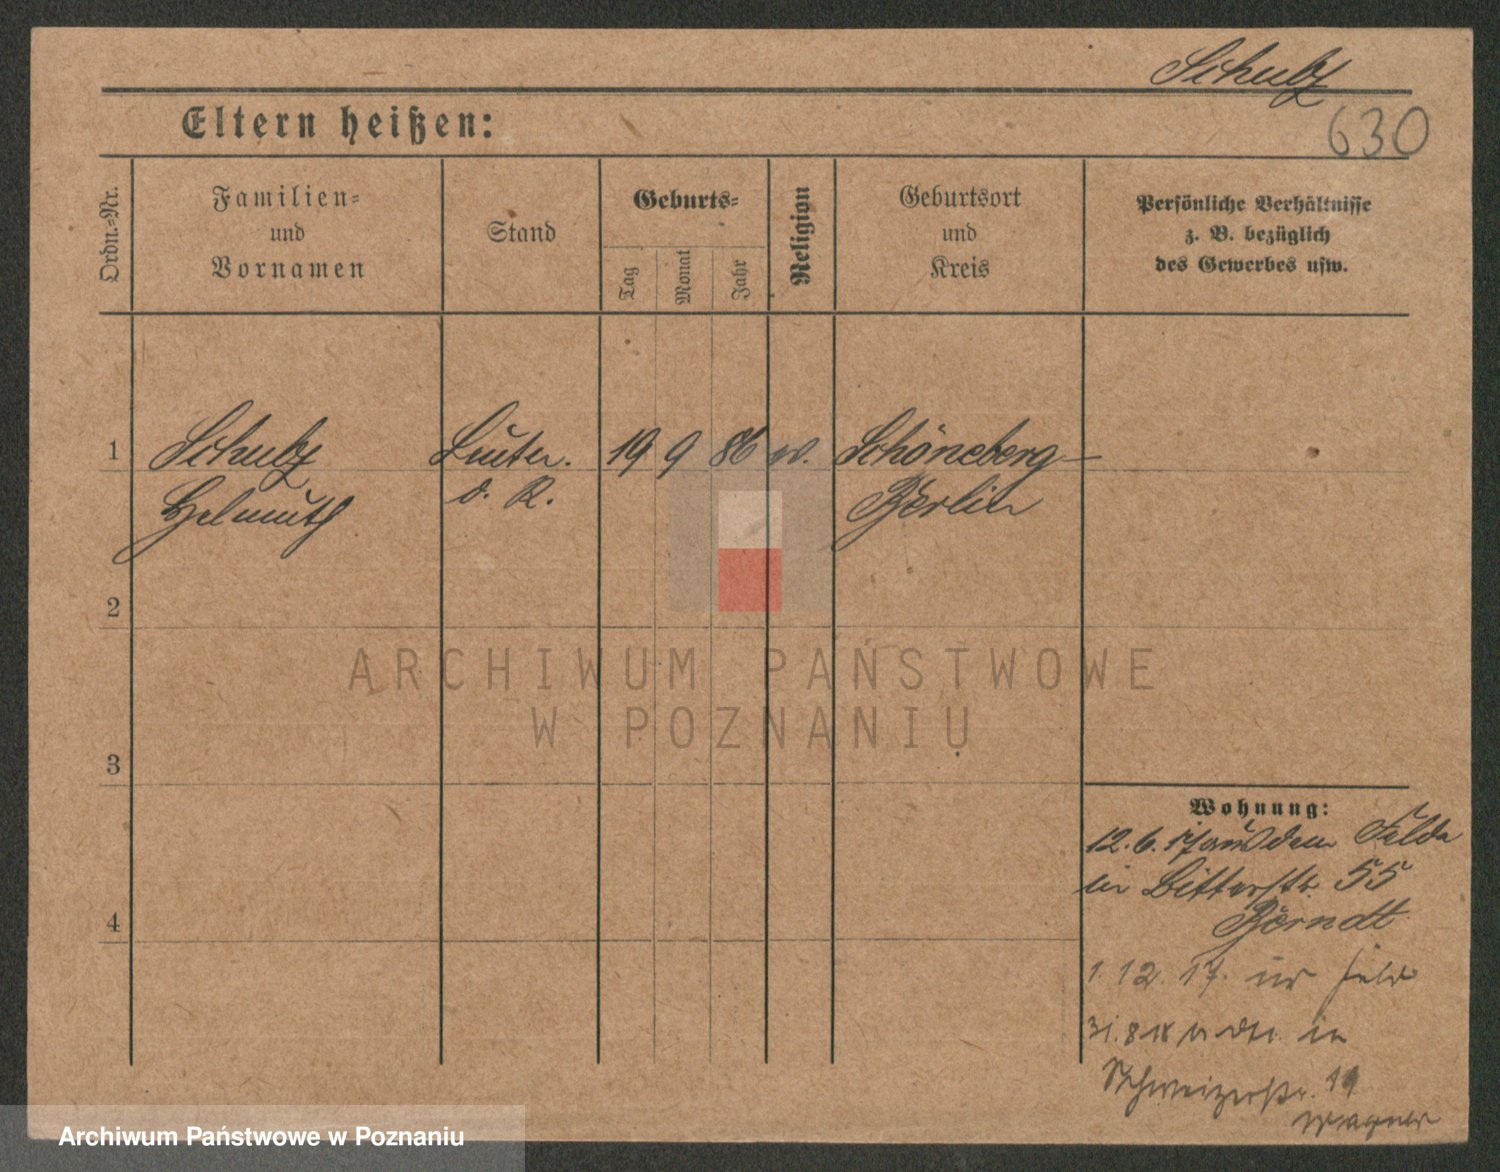 Schulz
630
Eltern heißen:
Ordn.-Nr.
Familien-
und
Vornamen
Stand
Geburts-
Tag
Monat
Jahr
Religion
Geburtsort
und
Kreis
Persönliche Verhältnisse
z. B. bezüglich
des Gewerbes usw.
1
Schulz
Helmuth
Leutn.
d. R.
19 9 86
Schöneberg-
Berlin
2
3
4
Wohnung:
12. 6. 17 aus dem Felde
in Bitterstr. 55
Berndt
1. 12. 17. ins Feld
31. 8 18 in
Schweizerstr. 19
Wagner
ARCHIWUM PAŃSTWOWE
W POZNANIU
Archiwum Państwowe w Poznaniu